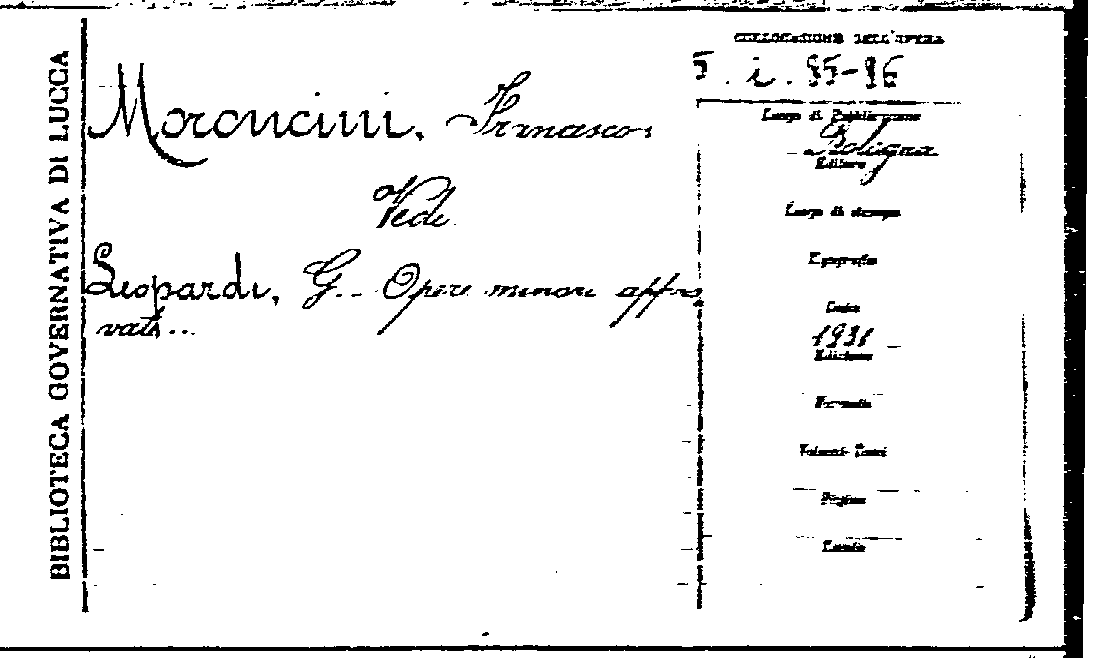 BIBLIOTECA GOVERNATIVA DI LUCCA
Moroncini, Francesco.
Vedi
Leopardi, G. - Opere minori appro
vate...
COLLOCAZIONE DELL'OPERA
i. 95-96
Luogo di Pubblicazione
Bologna
Editore
Luogo di stampa
Tipografia
Codice
1931
Edizione
Formato
Volumi - Tomi
Pagine